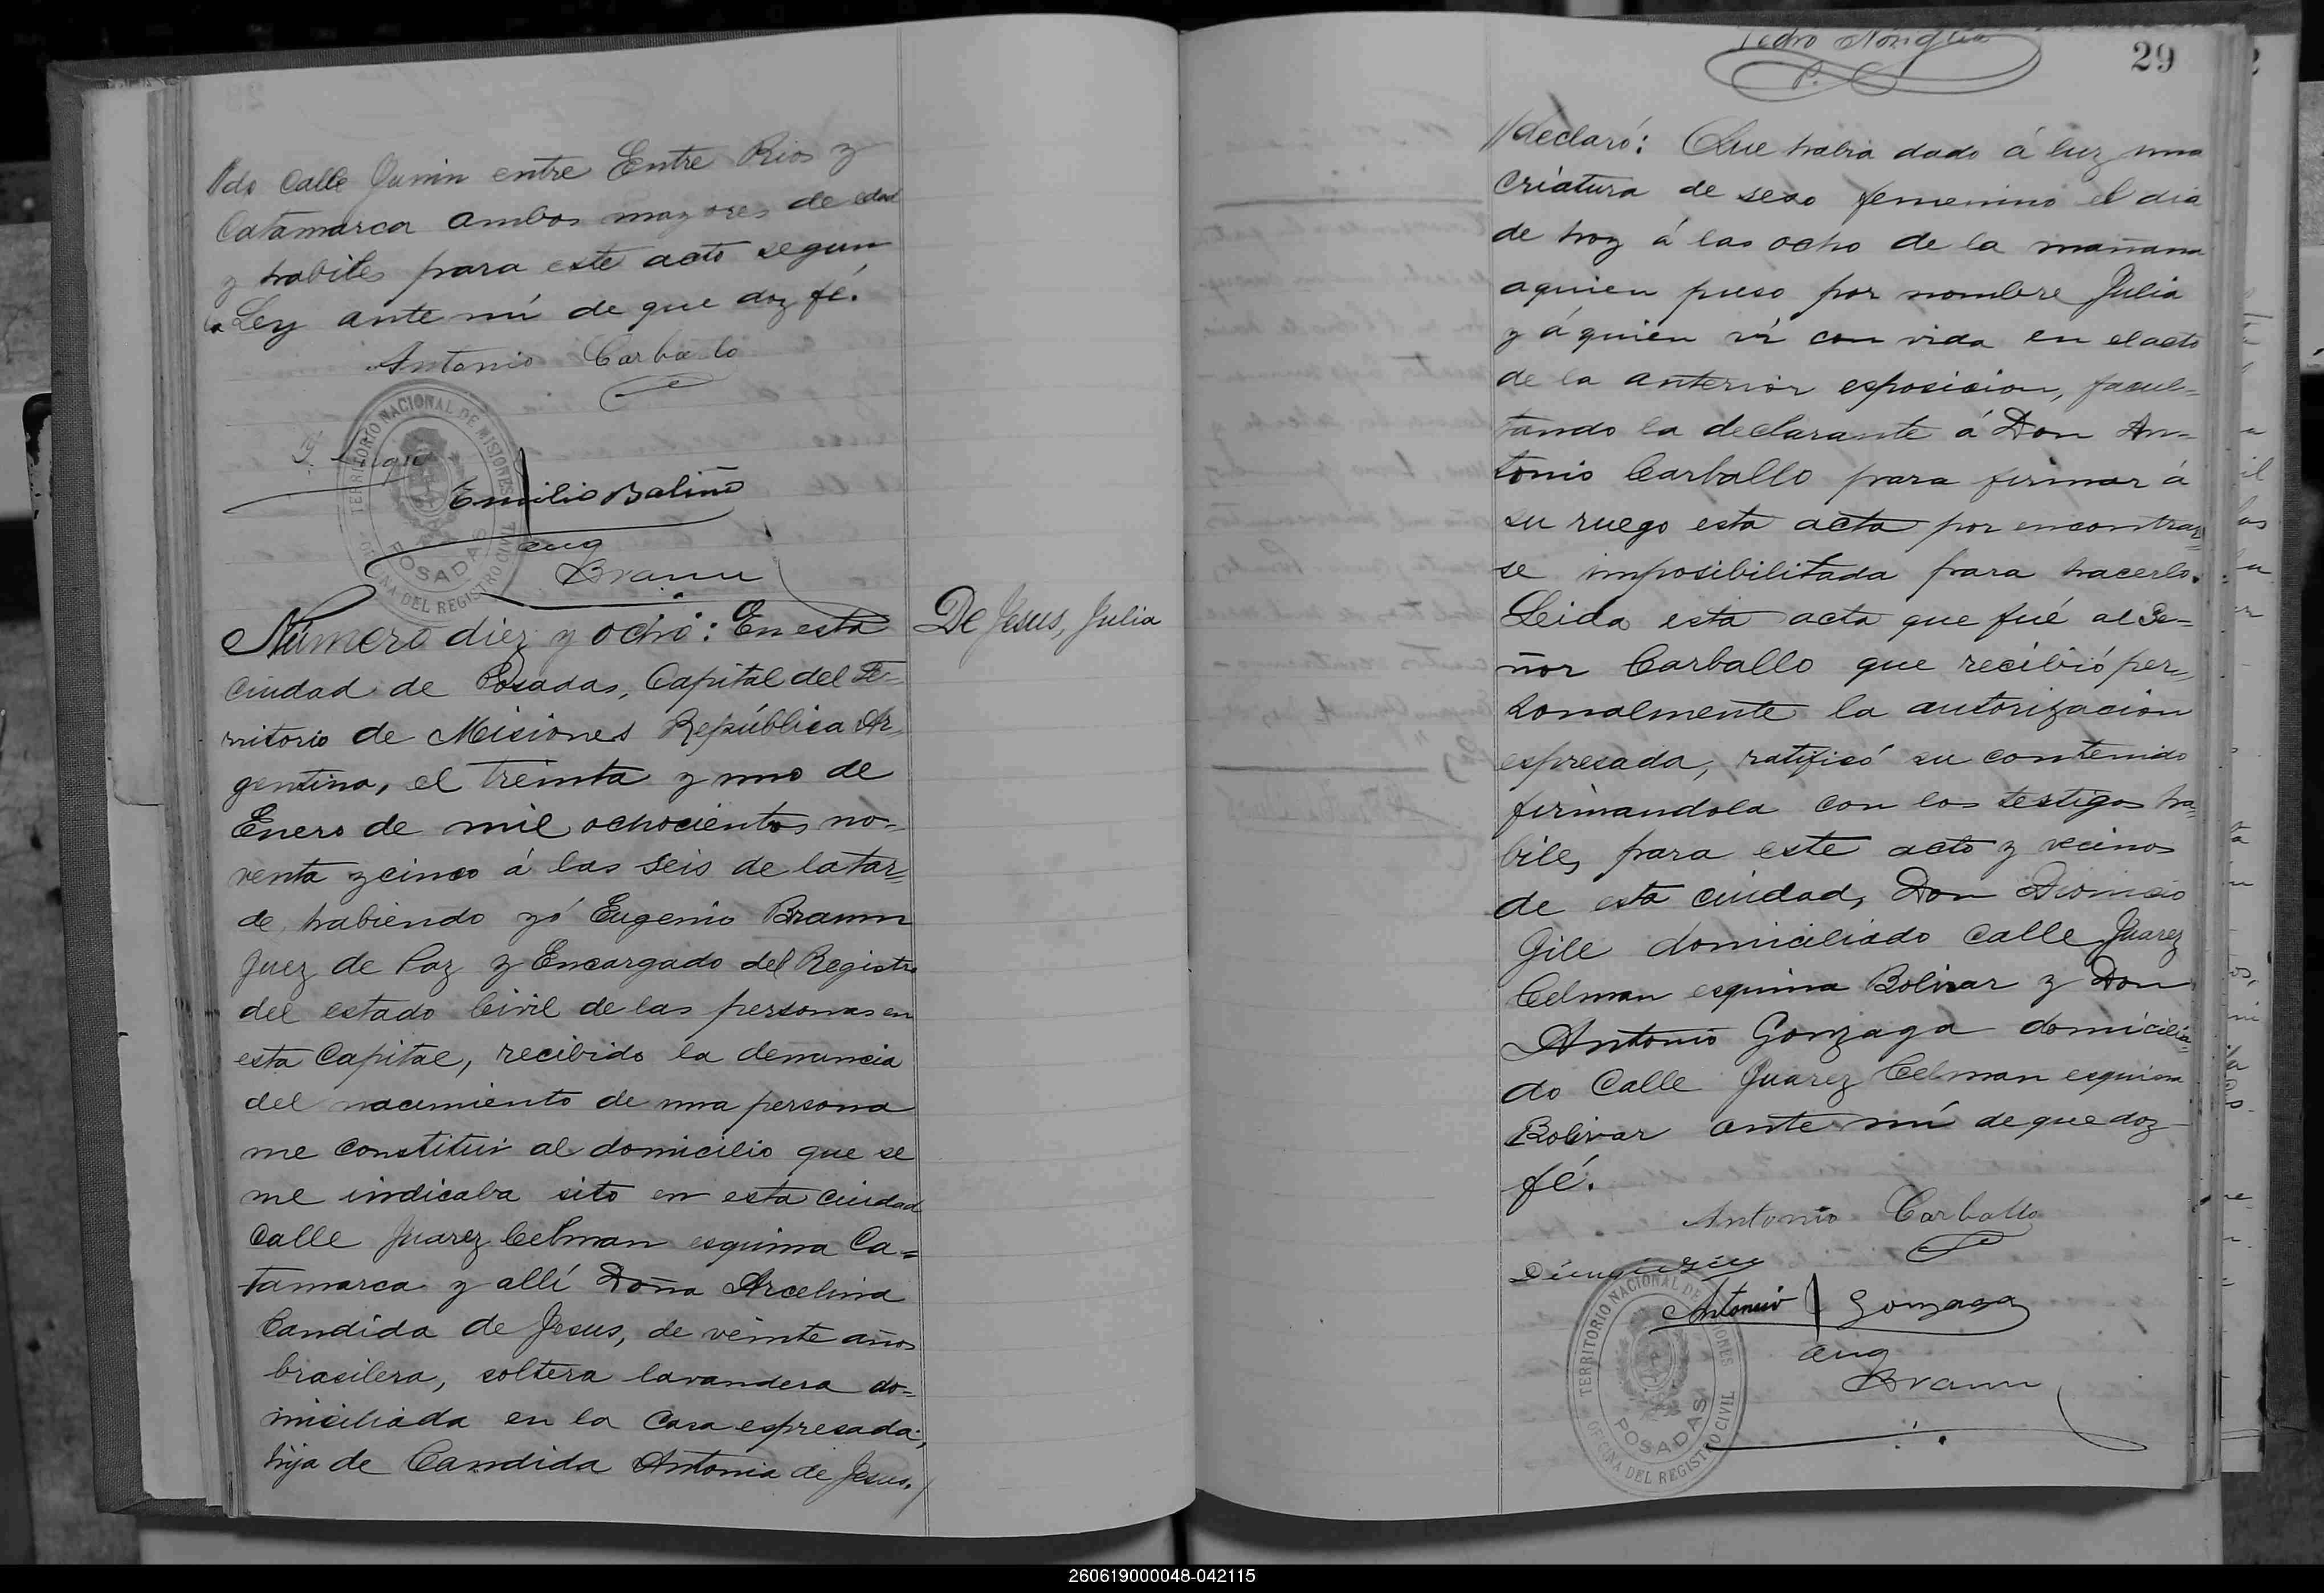 //do Calle Junin entre Entre Rios y
Catamarca ambos mayores de edad
y habiles para este acto segun
la Ley ante mí de que doy fé.
Antonio Carballo
TERRITORIO NACIONAL DE MISIONES
POSADAS
OFICINA DEL REGISTRO CIVIL
Emilio Baliño
Eug
Braun
Número diez y ocho: En esta
Ciudad de Posadas, Capital del Te-
rritorio de Misiones República Ar-
gentina, el treinta y uno de
Enero de mil ochocientos no-
venta y cinco á las seis de la tar-
de habiendo yó Eugenio Braun
Juez de Paz y Encargado del Registro
del estado Civil de las personas en
esta Capital, recibido la denuncia
del nacimiento de una persona
me constitui al domicilio que se
me indicaba sito en esta Ciudad
Calle Juarez Celman esquina Ca-
tamarca y allí Doña Arcelina
Candida de Jesus, de veinte años
brasilera, soltera lavandera do-
miciliada en la casa espresada,
hija de Candida Antonia de Jesus,/
De Jesus, Julia
29
//declaró: Que habia dado á luz una
criatura de sexo femenino el dia
de hoy á las ocho de la mañana
aquien puso por nombre Julia
y á quien ví con vida en el acto
de la anterior esposicion, facul-
tando la declarante á Don An-
tonio Carballo para firmar á
su ruego esta acta por encontrar-
se imposibilitada para hacerlo.
Leida esta acta que fué al Se-
ñor Carballo que recibió per-
sonalmente la autorizacion
espresada, ratificó su contenido
firmandola con los testigos ha-
biles para este acto y vecinos
de esta ciudad, Don Dionicio
Gile domiciliado calle Juarez
Celman esquina Bolivar y Don
Antonio Gonzaga domicilia-
do Calle Juarez Celman esquina
Bolivar ante mí de que doy
fé.
Antonio Carballo
Antonio Gonzaga
Eug
Braun
TERRITORIO NACIONAL DE MISIONES
POSADAS
OFICINA DEL REGISTRO CIVIL
260619000048-042115